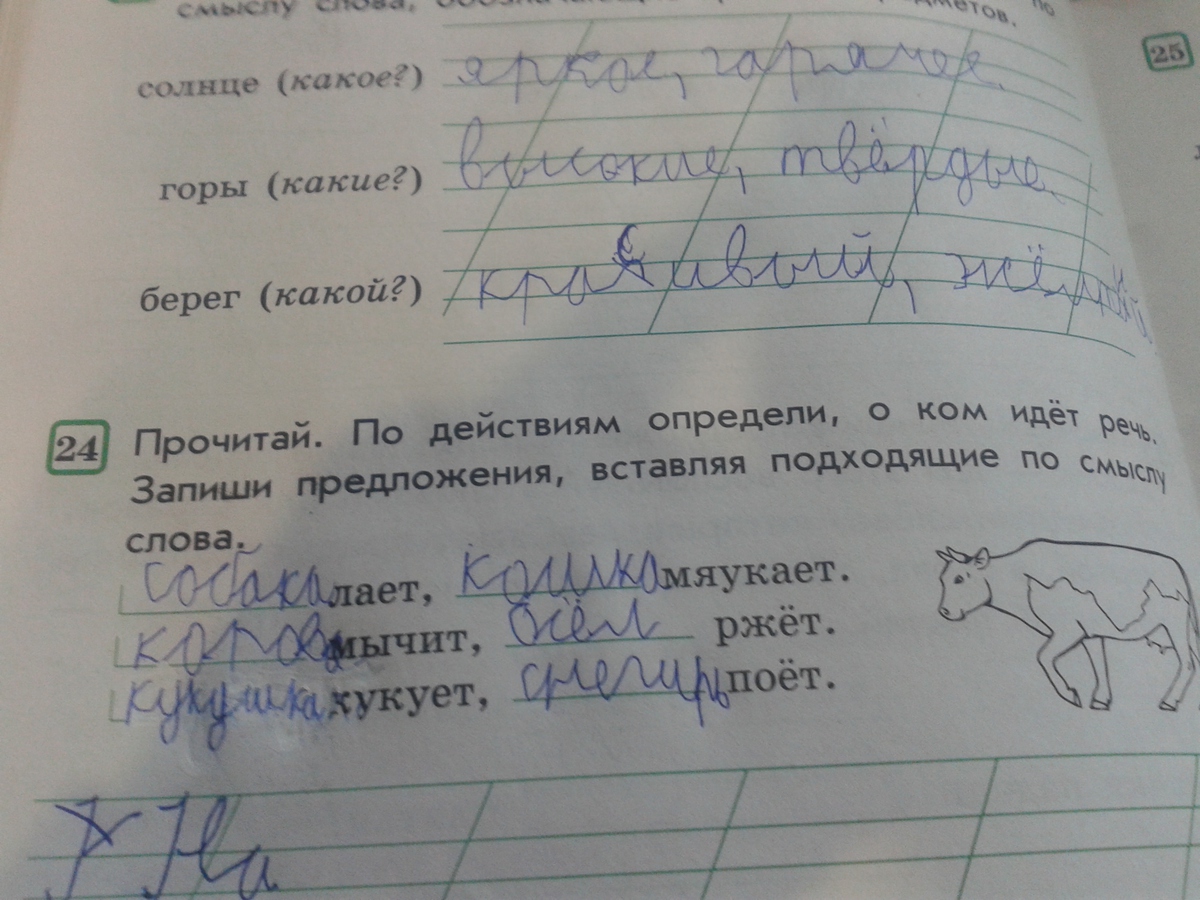 смыслу слова,
солнце (какое?) яркое, горячее.
горы (какие?) высокие, твёрдые.
берег (какой?) красивый,
25
24 Прочитай. По действиям определи, о ком идёт речь.
Запиши предложения, вставляя подходящие по смыслу
слова.
собака лает, кошка мяукает.
корова мычит, осёл ржёт.
кукушка кукует, снегирь поёт.
На